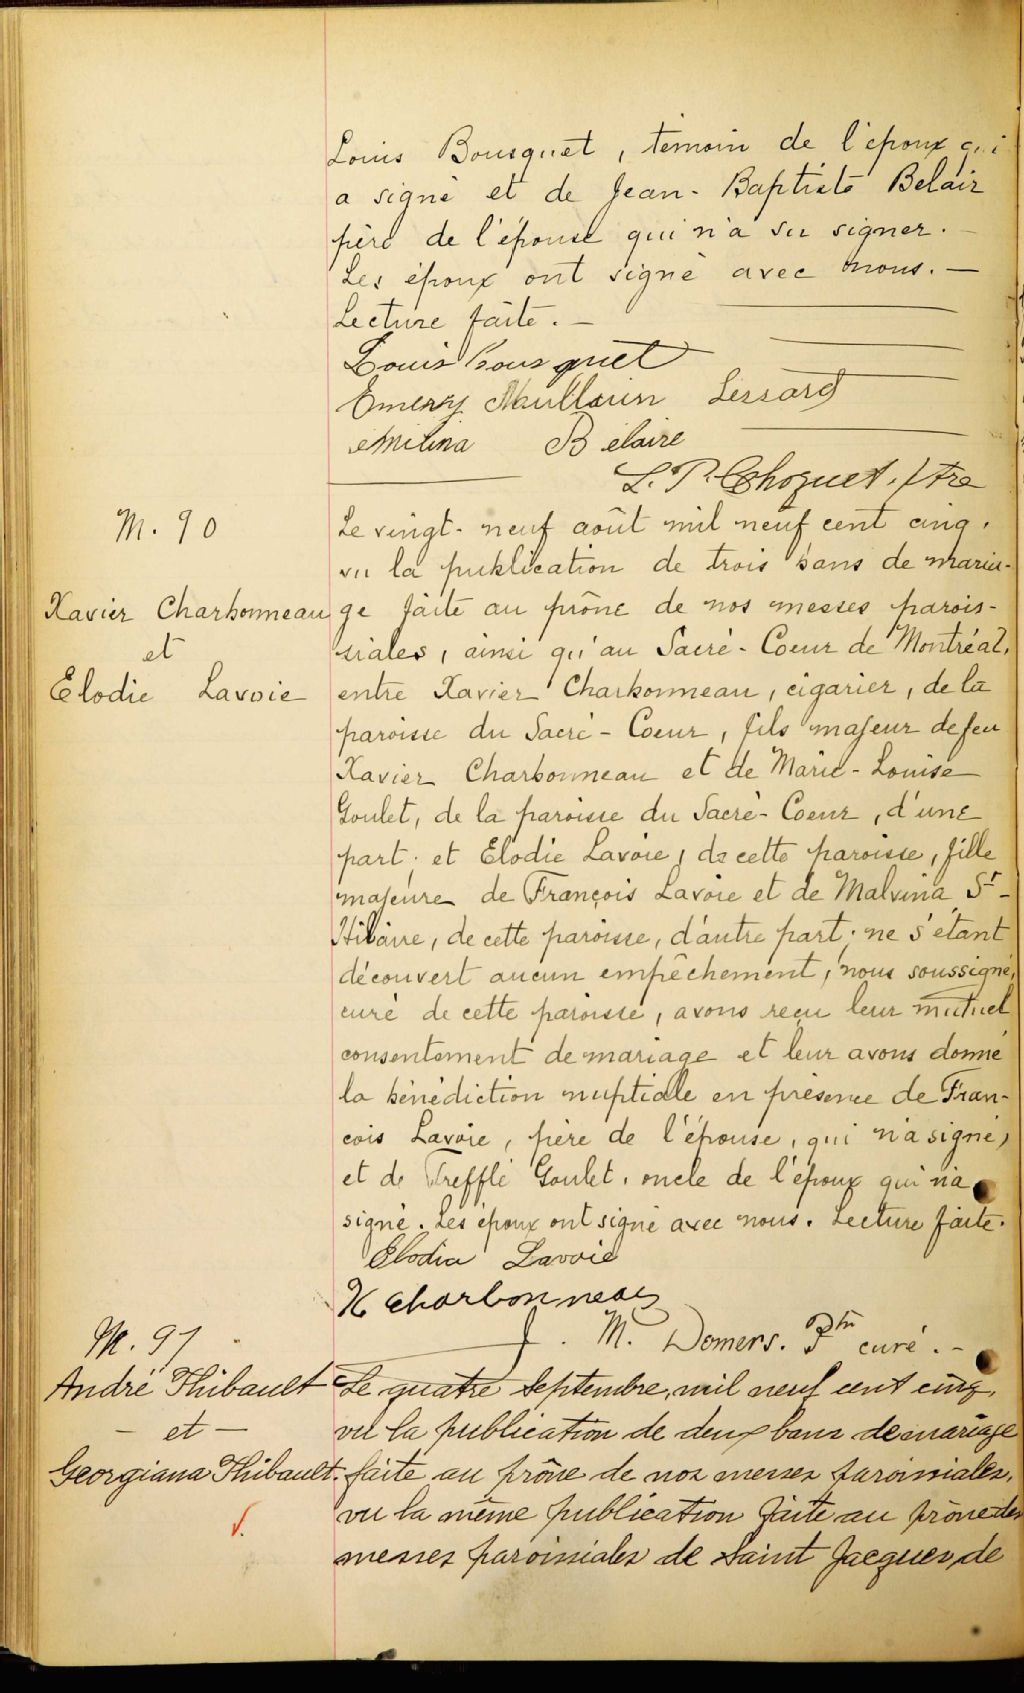 Louis Bousquet, témoin de l'époux qui
a signé et de Jean-Baptiste Belair
père de l'épouse qui n'a su signer. —
Les époux ont signé avec nous. —
Lecture faite. —
Louis Bousquet
Emery Lessard
Emilina Belaire
L. P. Choquet. Ptre
M. 90
Xavier Charbonneau
et
Elodie Lavoie
Le vingt-neuf août mil neuf cent cinq,
vu la publication de trois bans de maria-
ge faite au prône de nos messes parois-
siales, ainsi qu'au Sacré-Coeur de Montréal,
entre Xavier Charbonneau, cigarier, de la
paroisse du Sacré-Coeur, fils majeur de feu
Xavier Charbonneau et de Marie-Louise
Goulet, de la paroisse du Sacré-Coeur, d'une
part; et Elodie Lavoie, de cette paroisse, fille
majeure de François Lavoie et de Malvina St-
Hilaire, de cette paroisse, d'autre part; ne s'étant
découvert aucun empêchement, nous soussigné,
curé de cette paroisse, avons reçu leur mutuel
consentement de mariage et leur avons donné
la bénédiction nuptiale en présence de Fran-
cois Lavoie, père de l'épouse, qui n'a signé,
et de Trefflé Goulet, oncle de l'époux qui n'a
signé. Les époux ont signé avec nous. Lecture faite.
Elodia Lavoie
X Charbonneau
J. M. Demers. Ptre curé. —
M. 91
André Thibault
— et —
Georgiana Thibault.
Le quatre Septembre, mil neuf cent cinq,
vu la publication de deux bans de mariage
faite au prône de nos messes paroissiales,
vu la même publication faite au prône des
messes paroissiales de Saint Jacques, de